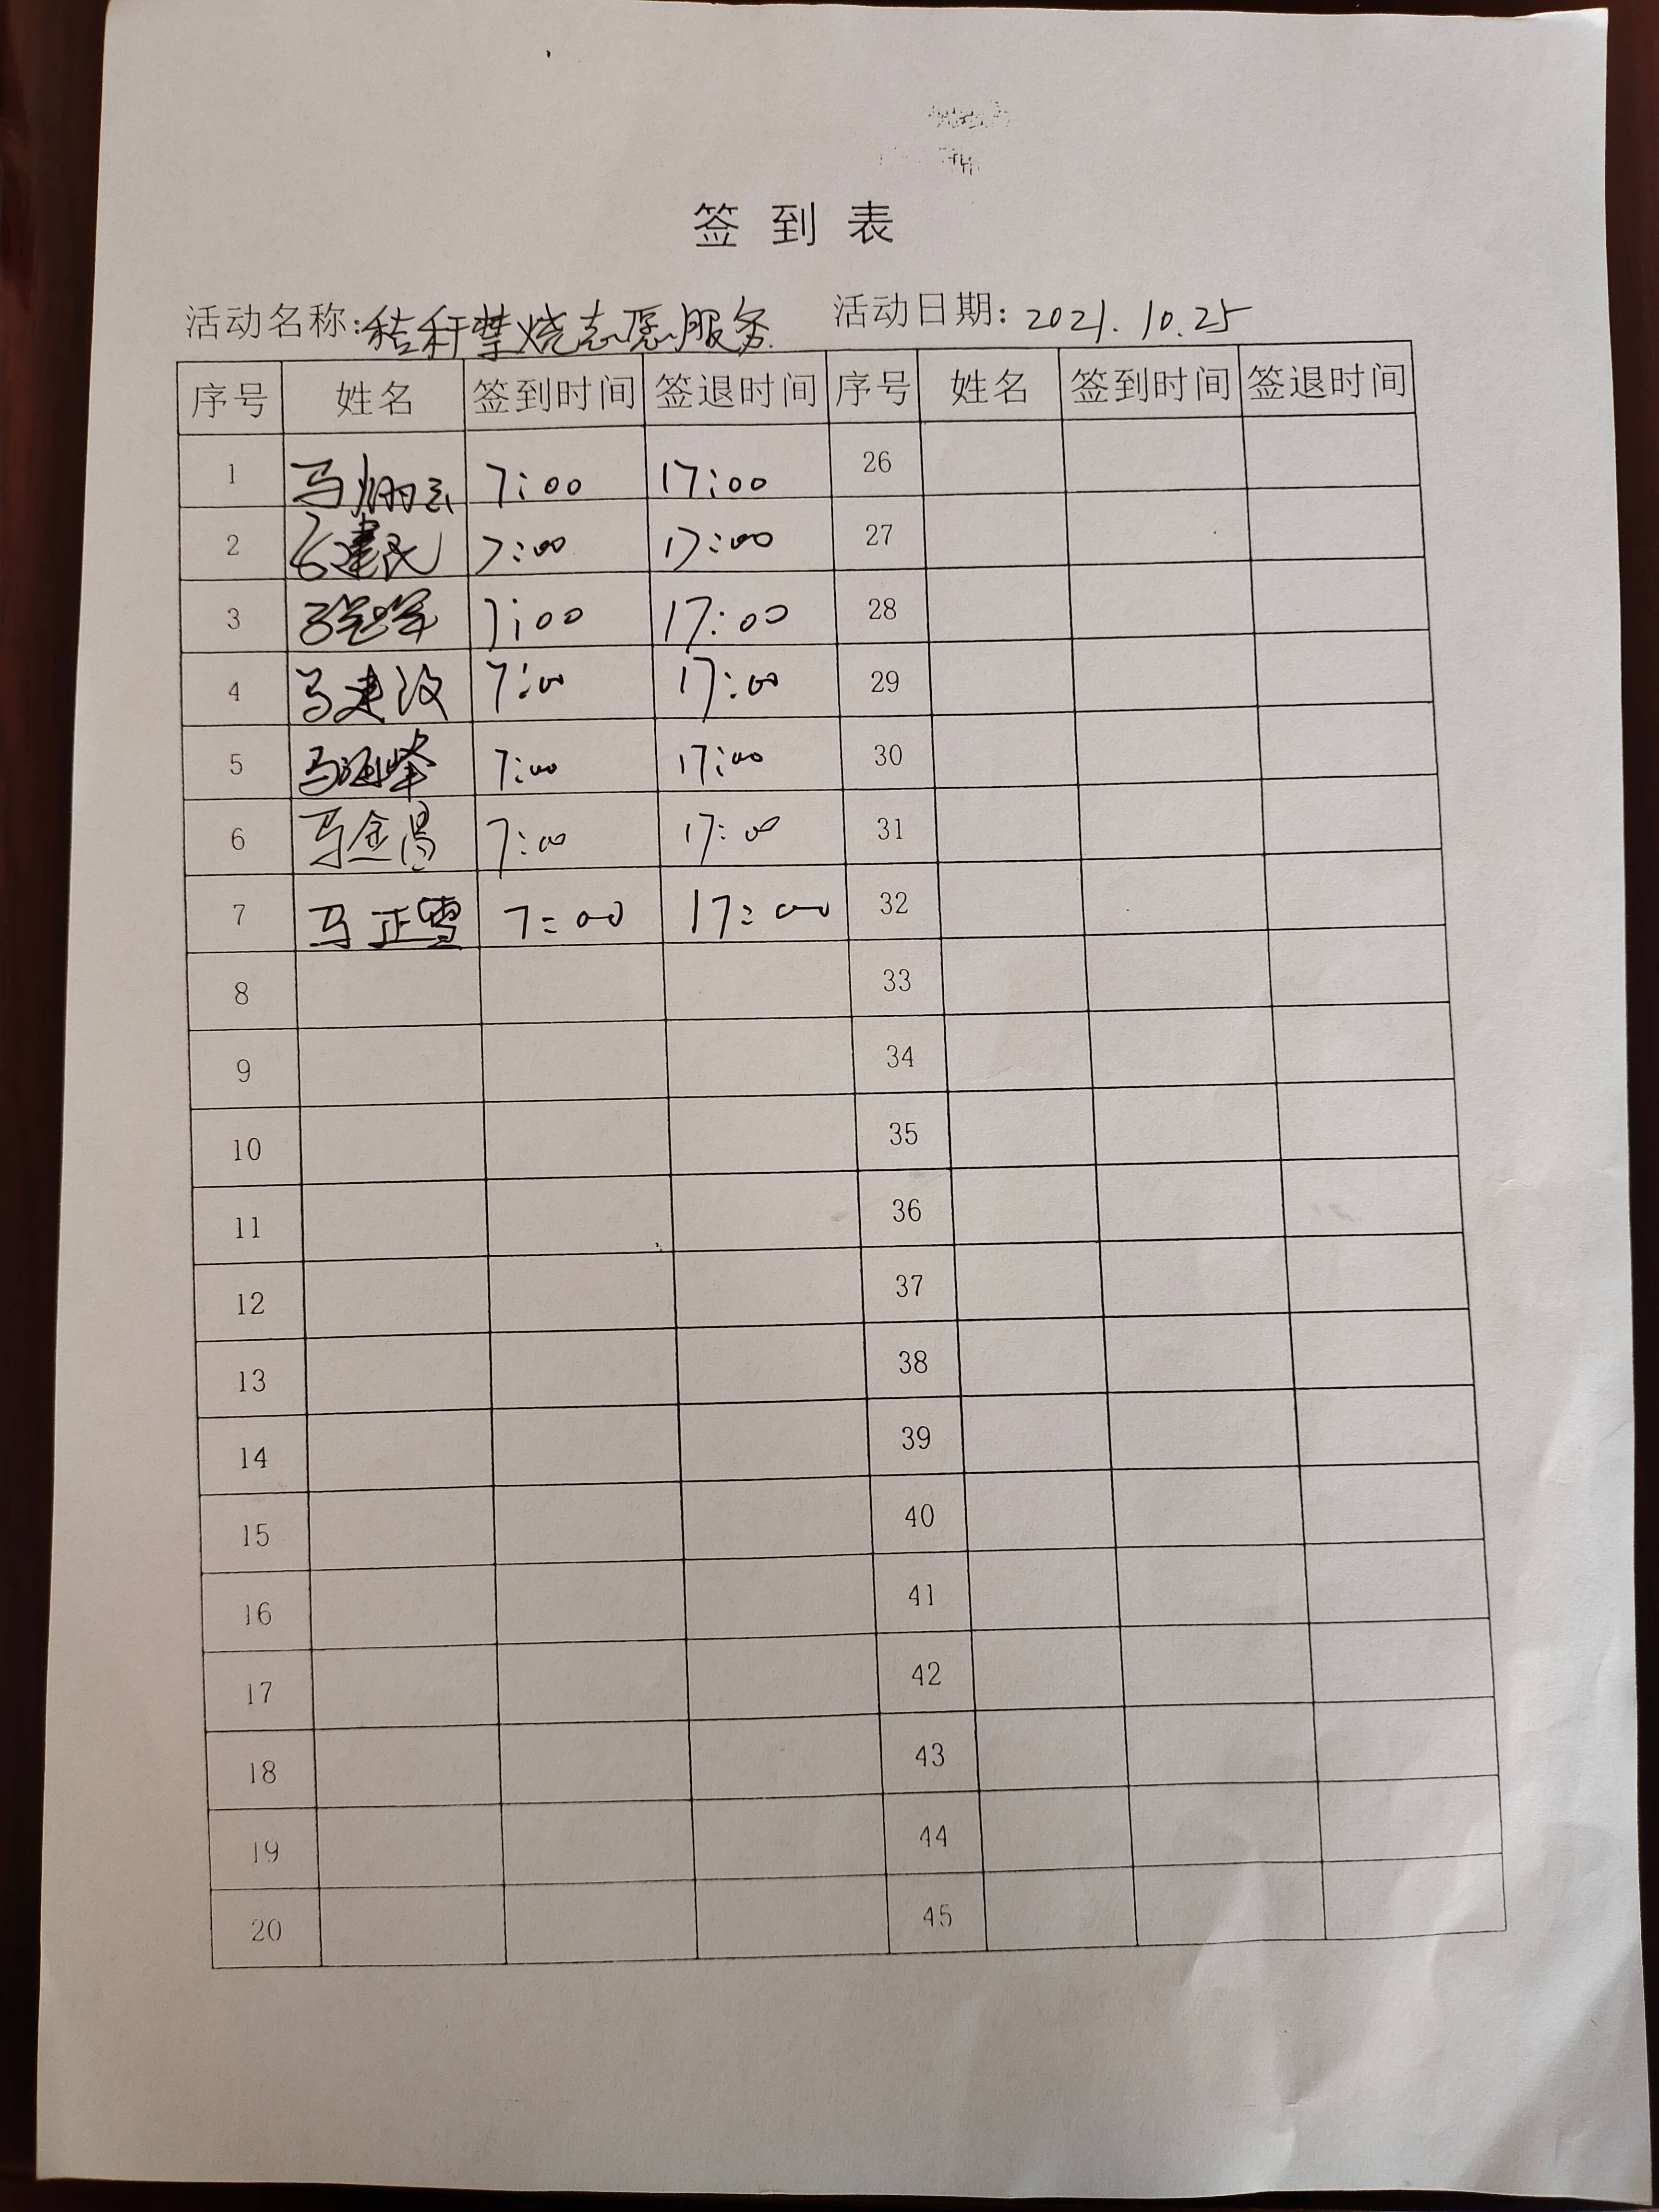 签到表
活动名称:秸秆禁烧志愿服务 活动日期:2021.10.25
序号 姓名 签到时间 签退时间 序号 姓名 签到时间 签退时间
1 马炳云 7:00 17:00 26
2 建民 7:00 17:00 27
3 7:00 17:00 28
4 马建波 7:00 17:00 29
5 马海峰 7:00 17:00 30
6 马金昌 7:00 17:00 31
7 马正雪 7:00 17:00 32
8 33
9 34
10 35
11 36
12 37
13 38
14 39
15 40
16 41
17 42
18 43
19 44
20 45